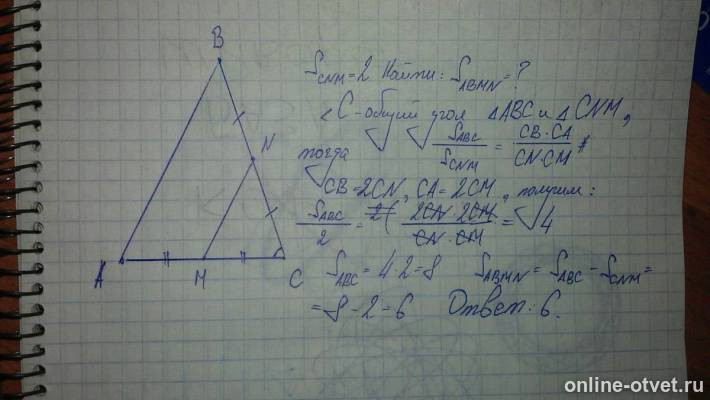 B
N
A
M
C
S_CNM = 2 Найти: S_ABMN = ?
∠C - общий угол ΔABC и ΔCNM,
тогда S_ABC / S_CNM = CB·CA / CN·CM
CB = 2CN, CA = 2CM, получим:
S_ABC / 2 = 2CN·2CM / CN·CM = 4
S_ABC = 4·2 = 8 S_ABMN = S_ABC - S_CNM =
= 8 - 2 = 6 Ответ: 6.
online-otvet.ru